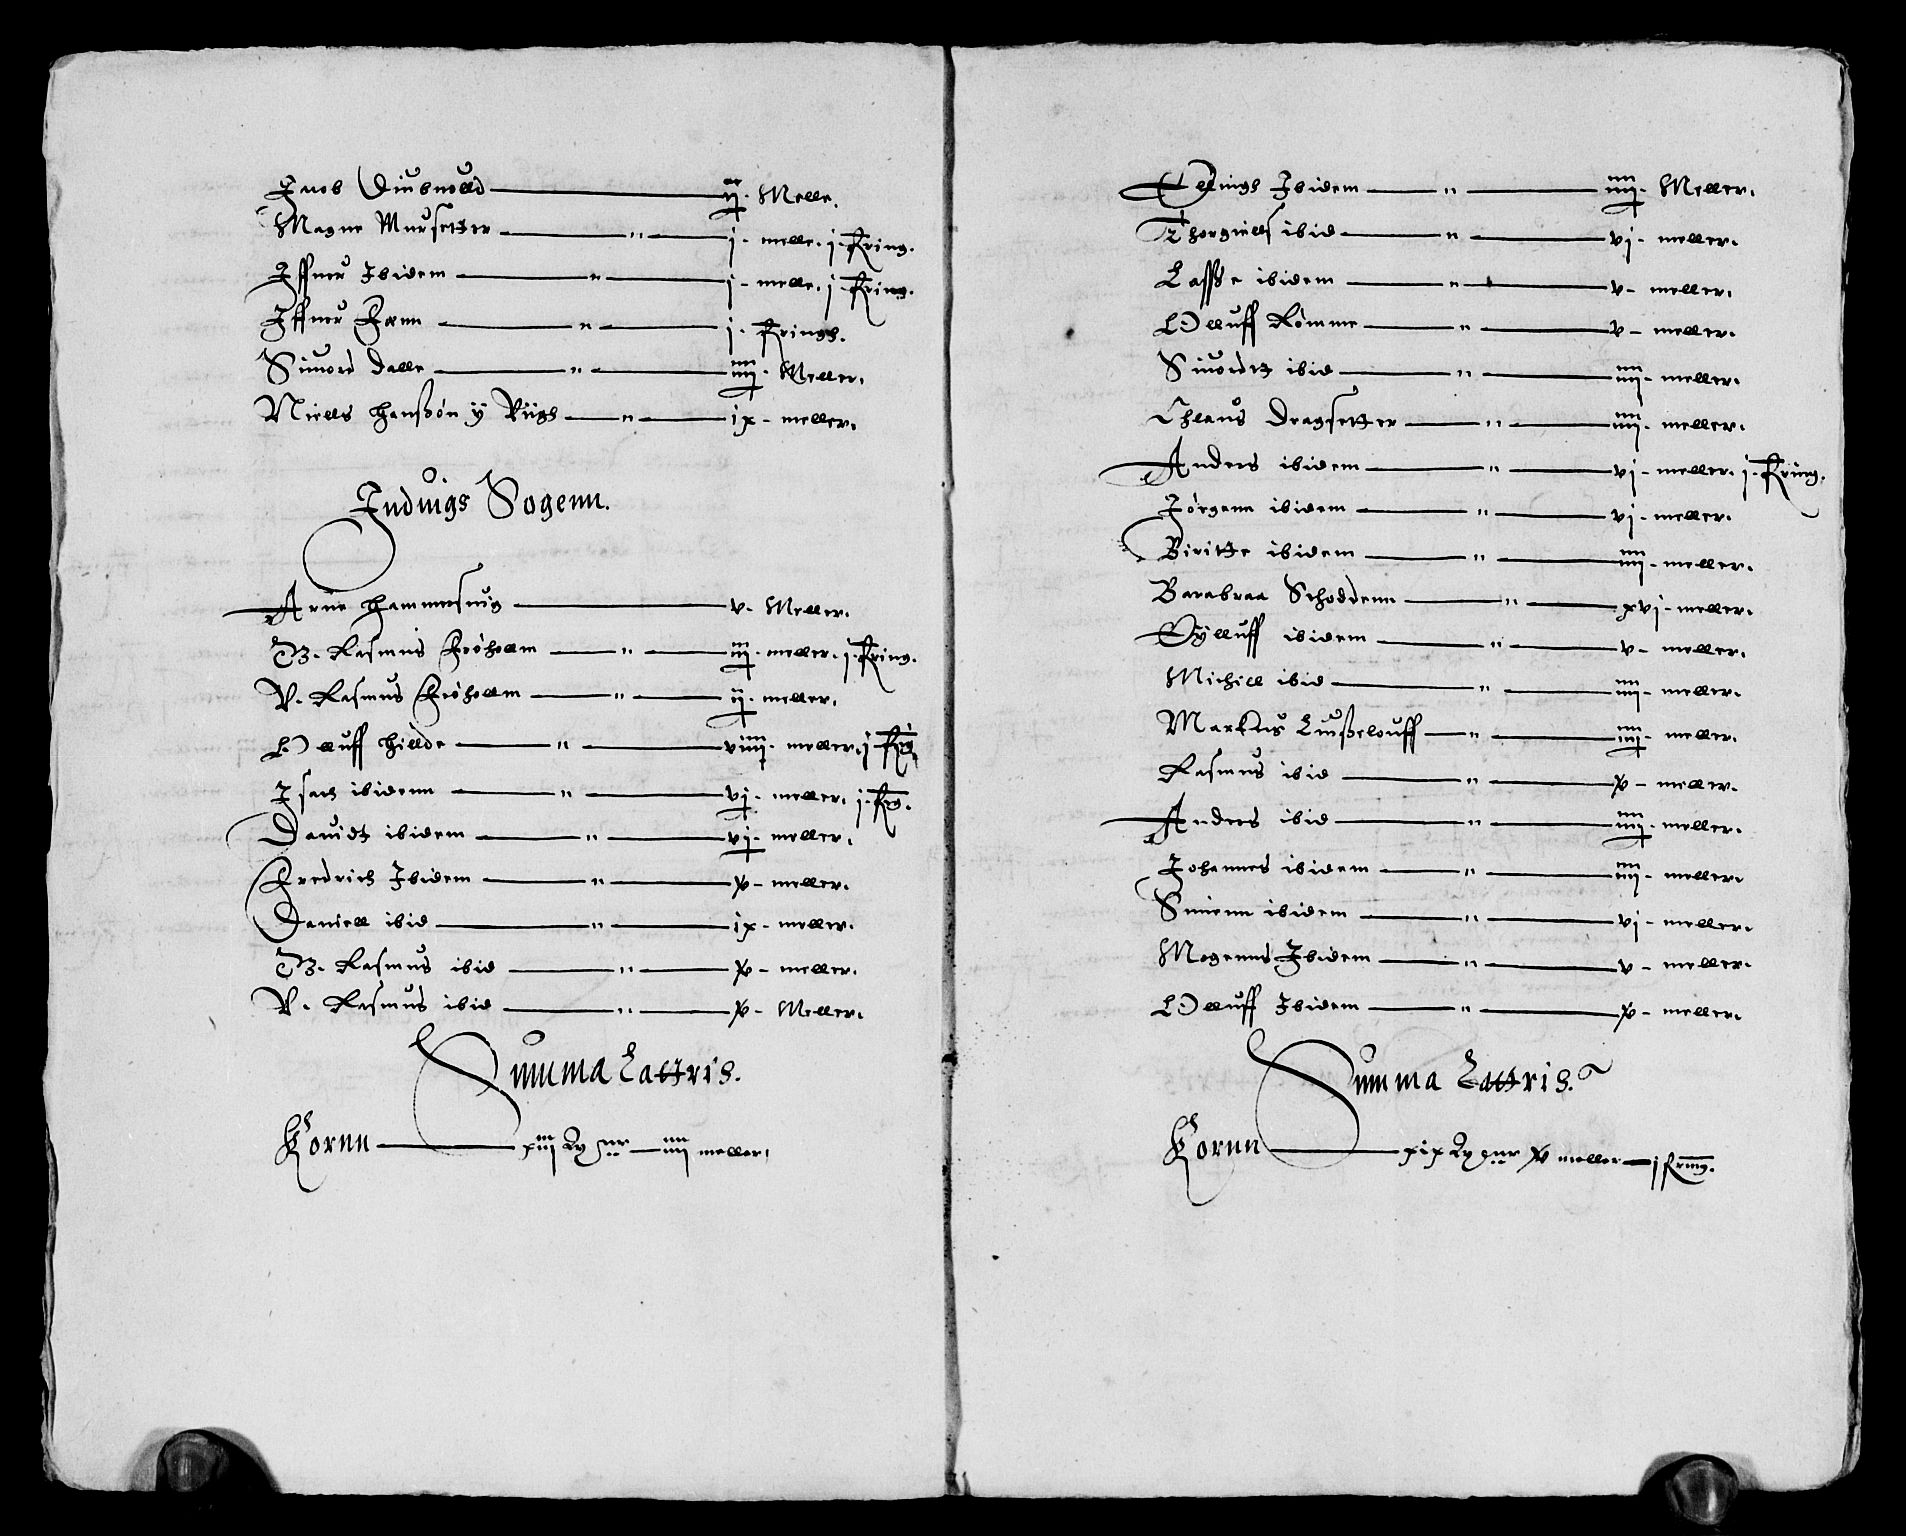 Jacob Diubuold — ij. Melle.
Magne Mursetter — " — j. melle. j. Fring.
Iffuer Ibidem — " — j. melle. j. Fring.
Iffuer Fenn — " — j. Frings.
Siuord Dalle — " — iiij. Meller.
Niells Hanssøn ÿ Viigh — " — ix. meller.
Induigs Sogenn.
Arne Hammersuig — v. Meller.
B. Rasmus Frøholm — " — iij. meller. j. Fring.
V. Rasmus Frøholm — " — ij. meller.
Olluff Hillde — " — viiij. meller. j. Frg.
Isach ibidenn — " — vj. meller. j. Frg.
Dauidt ibidem — " — vij. meller.
Fredrich Ibidem — " — x. meller.
Daniell ibid — " — ix. meller.
B. Rasmus ibid — " — x. meller.
V. Rasmus ibid — " — x. Meller.
Summa Lattris.
Kornn — xiij — iiij meller.
Ellings Ibidem — " — iiij. Meller.
Thorgiells ibid — " — vj. meller.
Lasse ibidem — " — v. meller.
Olluff Rømme — " — v. meller.
Siuordt ibid — " — iiij. meller.
Chlaus Dragsetter — " — iiij. meller.
Anders ibidem — " — vj. meller. j. Fring.
Jørgenn ibidem — " — vj. meller.
Biritte ibidem — " — iiij. meller.
Barabraa Schoddenn — " — xvj. meller.
Oÿlluff ibidem — " — v. meller.
Michill ibid — " — iiij. meller.
Markus Lusselouff — " — iiij. meller.
Rasmus ibid — " — x. meller.
Anders ibid — " — iiij. meller.
Johannes ibidem — " — iiij. meller.
Simenn ibidem — " — vj. meller.
Mogenns Ibidem — " — v. meller.
Olluff Ibidem — " — x. meller.
Summa Lattris.
Kornn — xix — x meller — j Fring.